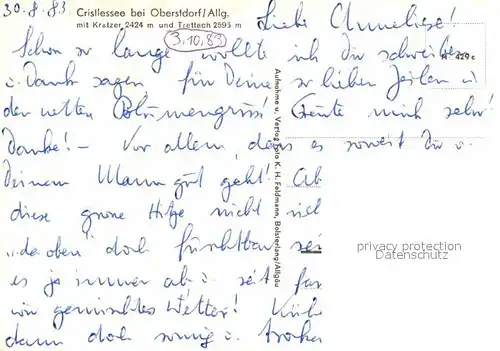 30.8.83
Cristlessee bei Oberstdorf/Allg.
mit Kratzer 2424 m und Trettach 2595 m
3.10.83
Liebe Anneliese!
Schon so lange wollte ich Dir schreiben
u. Dank sagen für Deine so lieben Zeilen u.
den netten Blumengruß! Freute mich sehr!
Danke! – Vor allem, dass es soweit Dir u.
Deinem Mann gut geht! Ab
diese große Hitze nicht viel
"da oben" doch furchtbar sei
es ja immer ab u. seit
wir gemischtes Wetter! Kühl
dann doch sonnig u. trocken
N 429c
Aufnahme u. Verlag Foto K. H. Feldmann, Bolsterlang/Allgäu
privacy protection
Datenschutz